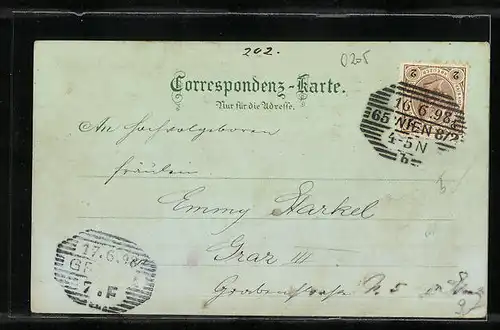 202.
0205
2 2
Correspondenz-Karte.
Nur für die Adresse.
16.6.98
65 WIEN 8/2
4-5N
6
An Hochwolgeboren
Fräulein
Emmy Starkel
Graz III
Grabenstrasse N. 5
17.6.98
7.F